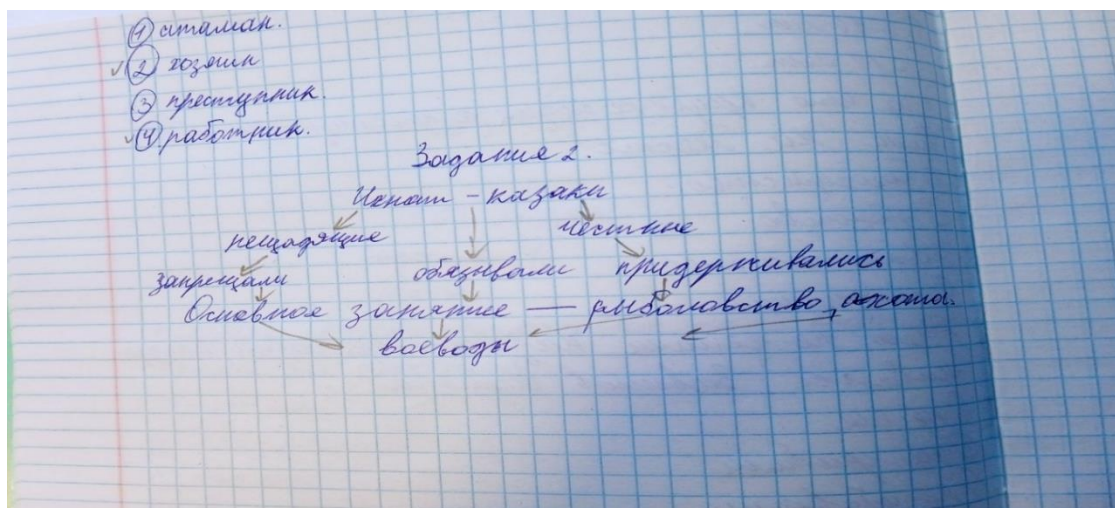 ① атаман.
✓② хозяин
③ преступник.
✓④ работник.
Задание 2.
Игнат - казаки
нещадящие честные
запрещали обязывали придерживались
Основное занятие — рыболовство, охота.
воеводы